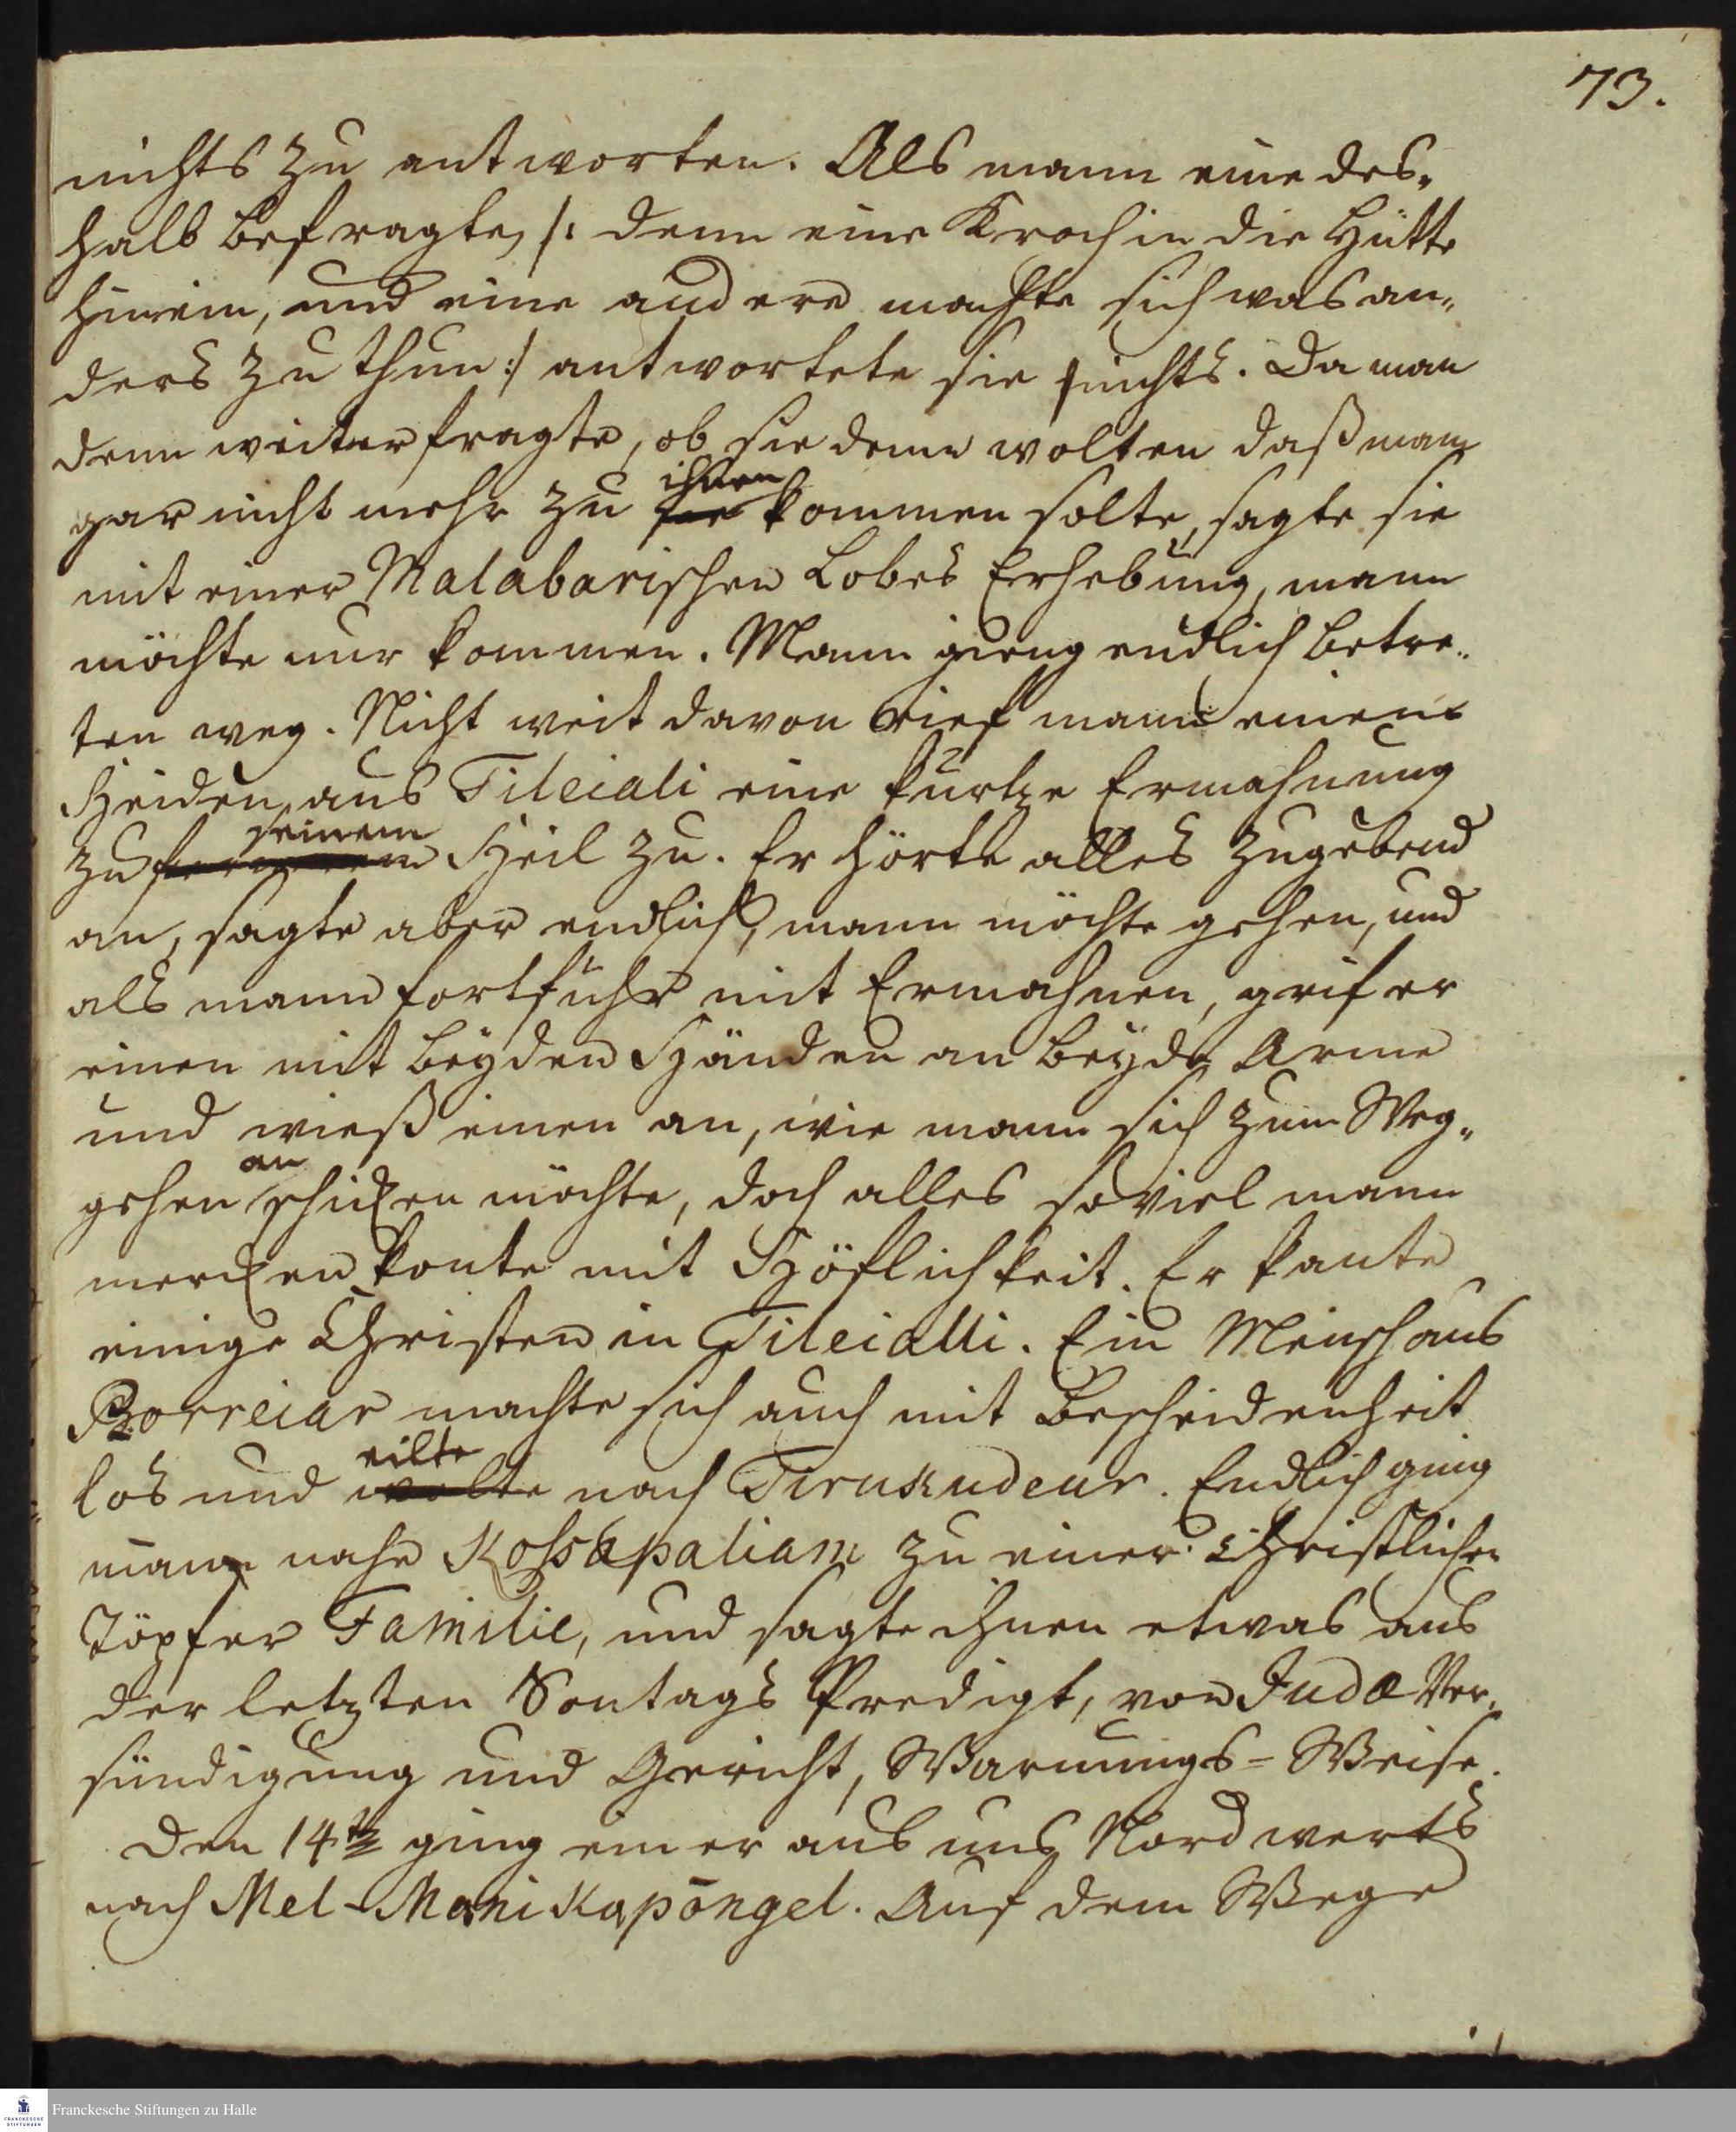 73.
nichts zu antworten. Als mann eine des„
halb befragte, /: denn eine Kroch in die Hütte
hinein, und eine andere machte sich was an„
ders zu thun :/ antwortete sie nichts. Da man
denn weiter fragte, ob sie denn wolten daß man
gar nicht mehr zu ihnen kommen solte, sagte sie
mit einer Malabarischen Lobes Erhebung, mann
möchte nur kommen. Mann gieng endlich betre„
ten weg. Nicht weit davon rief mann einem
Heiden, aus Tileiali eine kurtze Ermahnung
zu seinem Heil zu. Er hörte alles zugebend
an, sagte aber endlich, mann möchte gehen, und
als mann fortfuhr mit Ermahnen, grif er
einen mit beyden Händen an beyde Arme
und wieß einen an, wie mann sich zum Weg„
gehen anschicken möchte, doch alles so viel mann
mercken konte mit Höflichkeit. Er kante
einige Christen in Tileialli. Ein Mensch aus
Porreiar machte sich auch mit Bescheidenheit
los und eilte nach Tirukudeur. Endlich ging
mann nahe Kossapaliam zu einer Christlichen
Töpfer Familie, und sagte ihnen etwas aus
der letzten Sontags Predigt, von Judæ Ver„
sündigung und Gericht, Warnungs-Weise.
Den 14ten ging einer aus uns Nordwerts
nach Mel-Manikapōngel. Auf dem Wege
Franckesche Stiftungen zu Halle